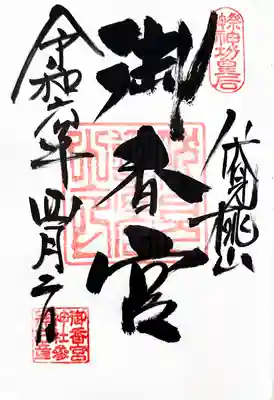 伏見桃山
御香宮
令和六年四月二日
御香宮
神社参
拝之章